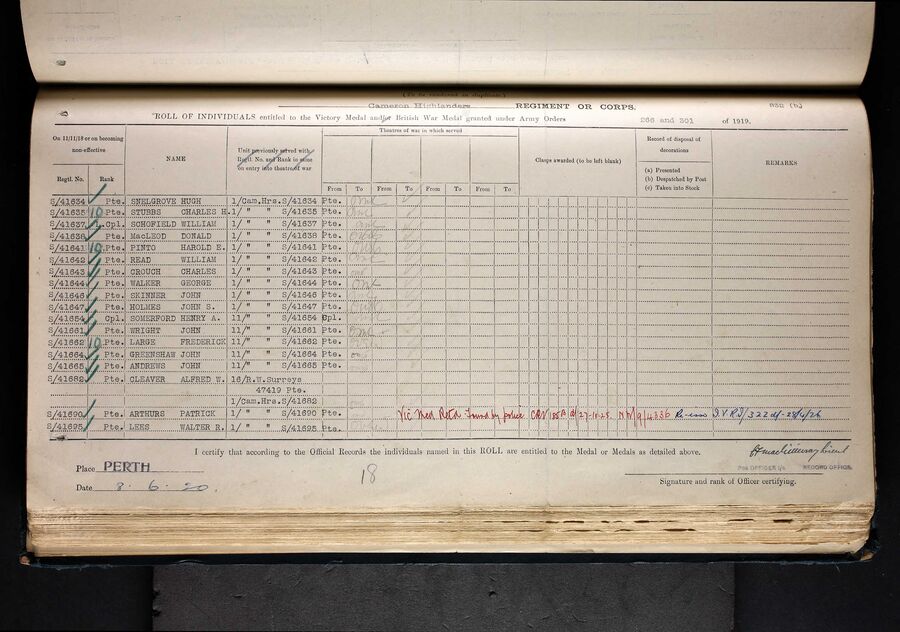 (To be rendered in duplicate.)
Cameron Highlanders REGIMENT OR CORPS. 832 (b)
"ROLL OF INDIVIDUALS entitled to the Victory Medal and/or British War Medal granted under Army Orders 266 and 301 of 1919.
On 11/11/18 or on becoming non-effective
Regtl. No. Rank
NAME
Unit previously served with, Regtl. No. and Rank in same on entry into theatre of war
Theatres of war in which served
From To From To From To From To
Clasps awarded (to be left blank)
Record of disposal of decorations
(a) Presented
(b) Despatched by Post
(c) Taken into Stock
REMARKS
S/41634 Pte. SNELGROVE HUGH 1/Cam.Hrs. S/41634 Pte.
S/41635 10 Pte. STUBBS CHARLES H. 1/ " " S/41635 Pte.
S/41637 L.Cpl. SCHOFIELD WILLIAM 1/ " " S/41637 Pte.
S/41638 Pte. MacLEOD DONALD 1/ " " S/41638 Pte.
S/41641 10 Pte. PINTO HAROLD E. 1/ " " S/41641 Pte.
S/41642 Pte. READ WILLIAM 1/ " " S/41642 Pte.
S/41643 Pte. CROUCH CHARLES 1/ " " S/41643 Pte.
S/41644 Pte. WALKER GEORGE 1/ " " S/41644 Pte.
S/41646 Pte. SKINNER JOHN 1/ " " S/41646 Pte.
S/41647 Pte. HOLMES JOHN S. 1/ " " S/41647 Pte.
S/41654 Cpl. SOMERFORD HENRY A. 11/ " " S/41654 Cpl.
S/41661 Pte. WRIGHT JOHN 11/ " " S/41661 Pte.
S/41662 10 Pte. LARGE FREDERICK 11/ " " S/41662 Pte.
S/41664 Pte. GREENSHAW JOHN 11/ " " S/41664 Pte.
S/41665 Pte. ANDREWS JOHN 11/ " " S/41665 Pte.
S/41682 Pte. CLEAVER ALFRED W. 16/R.W.Surreys
47419 Pte.
1/Cam.Hrs. S/41682
S/41690 Pte. ARTHURS PATRICK 1/ " " S/41690 Pte. Vic Med Retd found by police 27-10-25. NW/9/4336 Re-iss
S/41695 Pte. LEES WALTER R. 1/ " " S/41695 Pte.
I certify that according to the Official Records the individuals named in this ROLL are entitled to the Medal or Medals as detailed above.
Place PERTH
Date 8. 6. 20.
18
FOR OFFICER i/c RECORD OFFICE.
Signature and rank of Officer certifying.